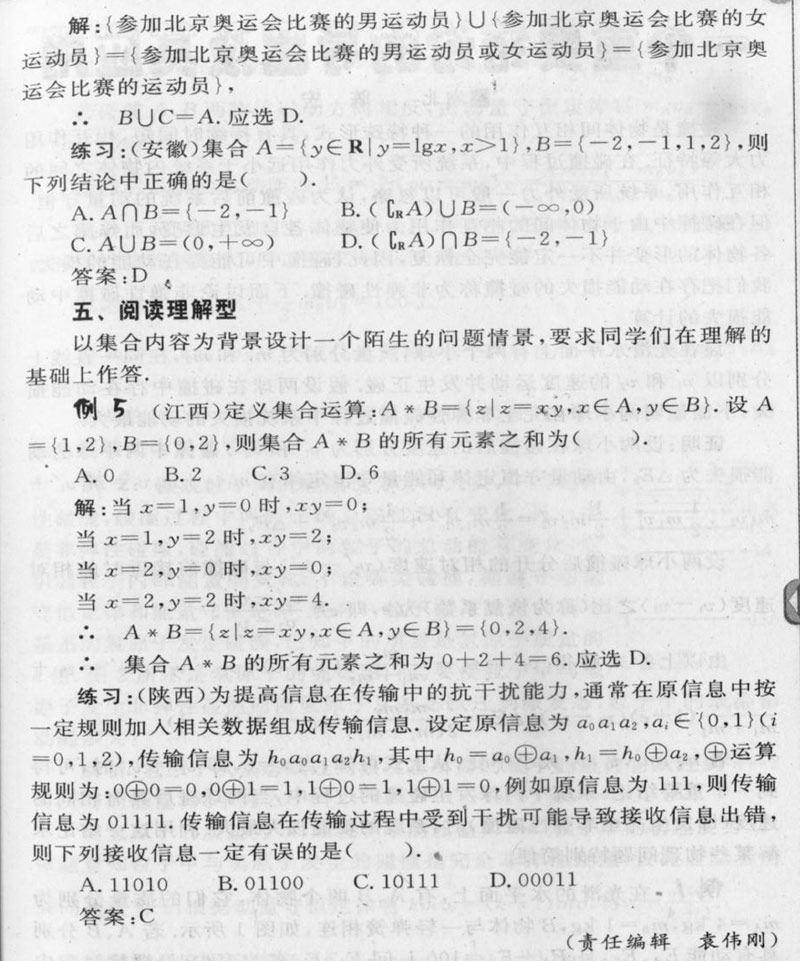 解:{参加北京奥运会比赛的男运动员}∪{参加北京奥运会比赛的女
运动员}={参加北京奥运会比赛的男运动员或女运动员}={参加北京奥
运会比赛的运动员},
∴ B∪C=A. 应选 D.
练习:(安徽)集合 A={y∈R|y=lgx,x>1},B={-2,-1,1,2},则
下列结论中正确的是( ).
A. A∩B={-2,-1} B. (∁RA)∪B=(-∞,0)
C. A∪B=(0,+∞) D. (∁RA)∩B={-2,-1}
答案:D
五、阅读理解型
以集合内容为背景设计一个陌生的问题情景,要求同学们在理解的
基础上作答.
例 5 (江西)定义集合运算:A*B={z|z=xy,x∈A,y∈B}. 设 A
={1,2},B={0,2},则集合 A*B 的所有元素之和为( ).
A. 0 B. 2 C. 3 D. 6
解:当 x=1,y=0 时,xy=0;
当 x=1,y=2 时,xy=2;
当 x=2,y=0 时,xy=0;
当 x=2,y=2 时,xy=4.
∴ A*B={z|z=xy,x∈A,y∈B}={0,2,4}.
∴ 集合 A*B 的所有元素之和为 0+2+4=6. 应选 D.
练习:(陕西)为提高信息在传输中的抗干扰能力,通常在原信息中按
一定规则加入相关数据组成传输信息. 设定原信息为 a₀a₁a₂,aᵢ∈{0,1}(i
=0,1,2),传输信息为 h₀a₀a₁a₂h₁,其中 h₀=a₀⊕a₁,h₁=h₀⊕a₂,⊕运算
规则为:0⊕0=0,0⊕1=1,1⊕0=1,1⊕1=0,例如原信息为 111,则传输
信息为 01111. 传输信息在传输过程中受到干扰可能导致接收信息出错,
则下列接收信息一定有误的是( ).
A. 11010 B. 01100 C. 10111 D. 00011
答案:C
(责任编辑 袁伟刚)